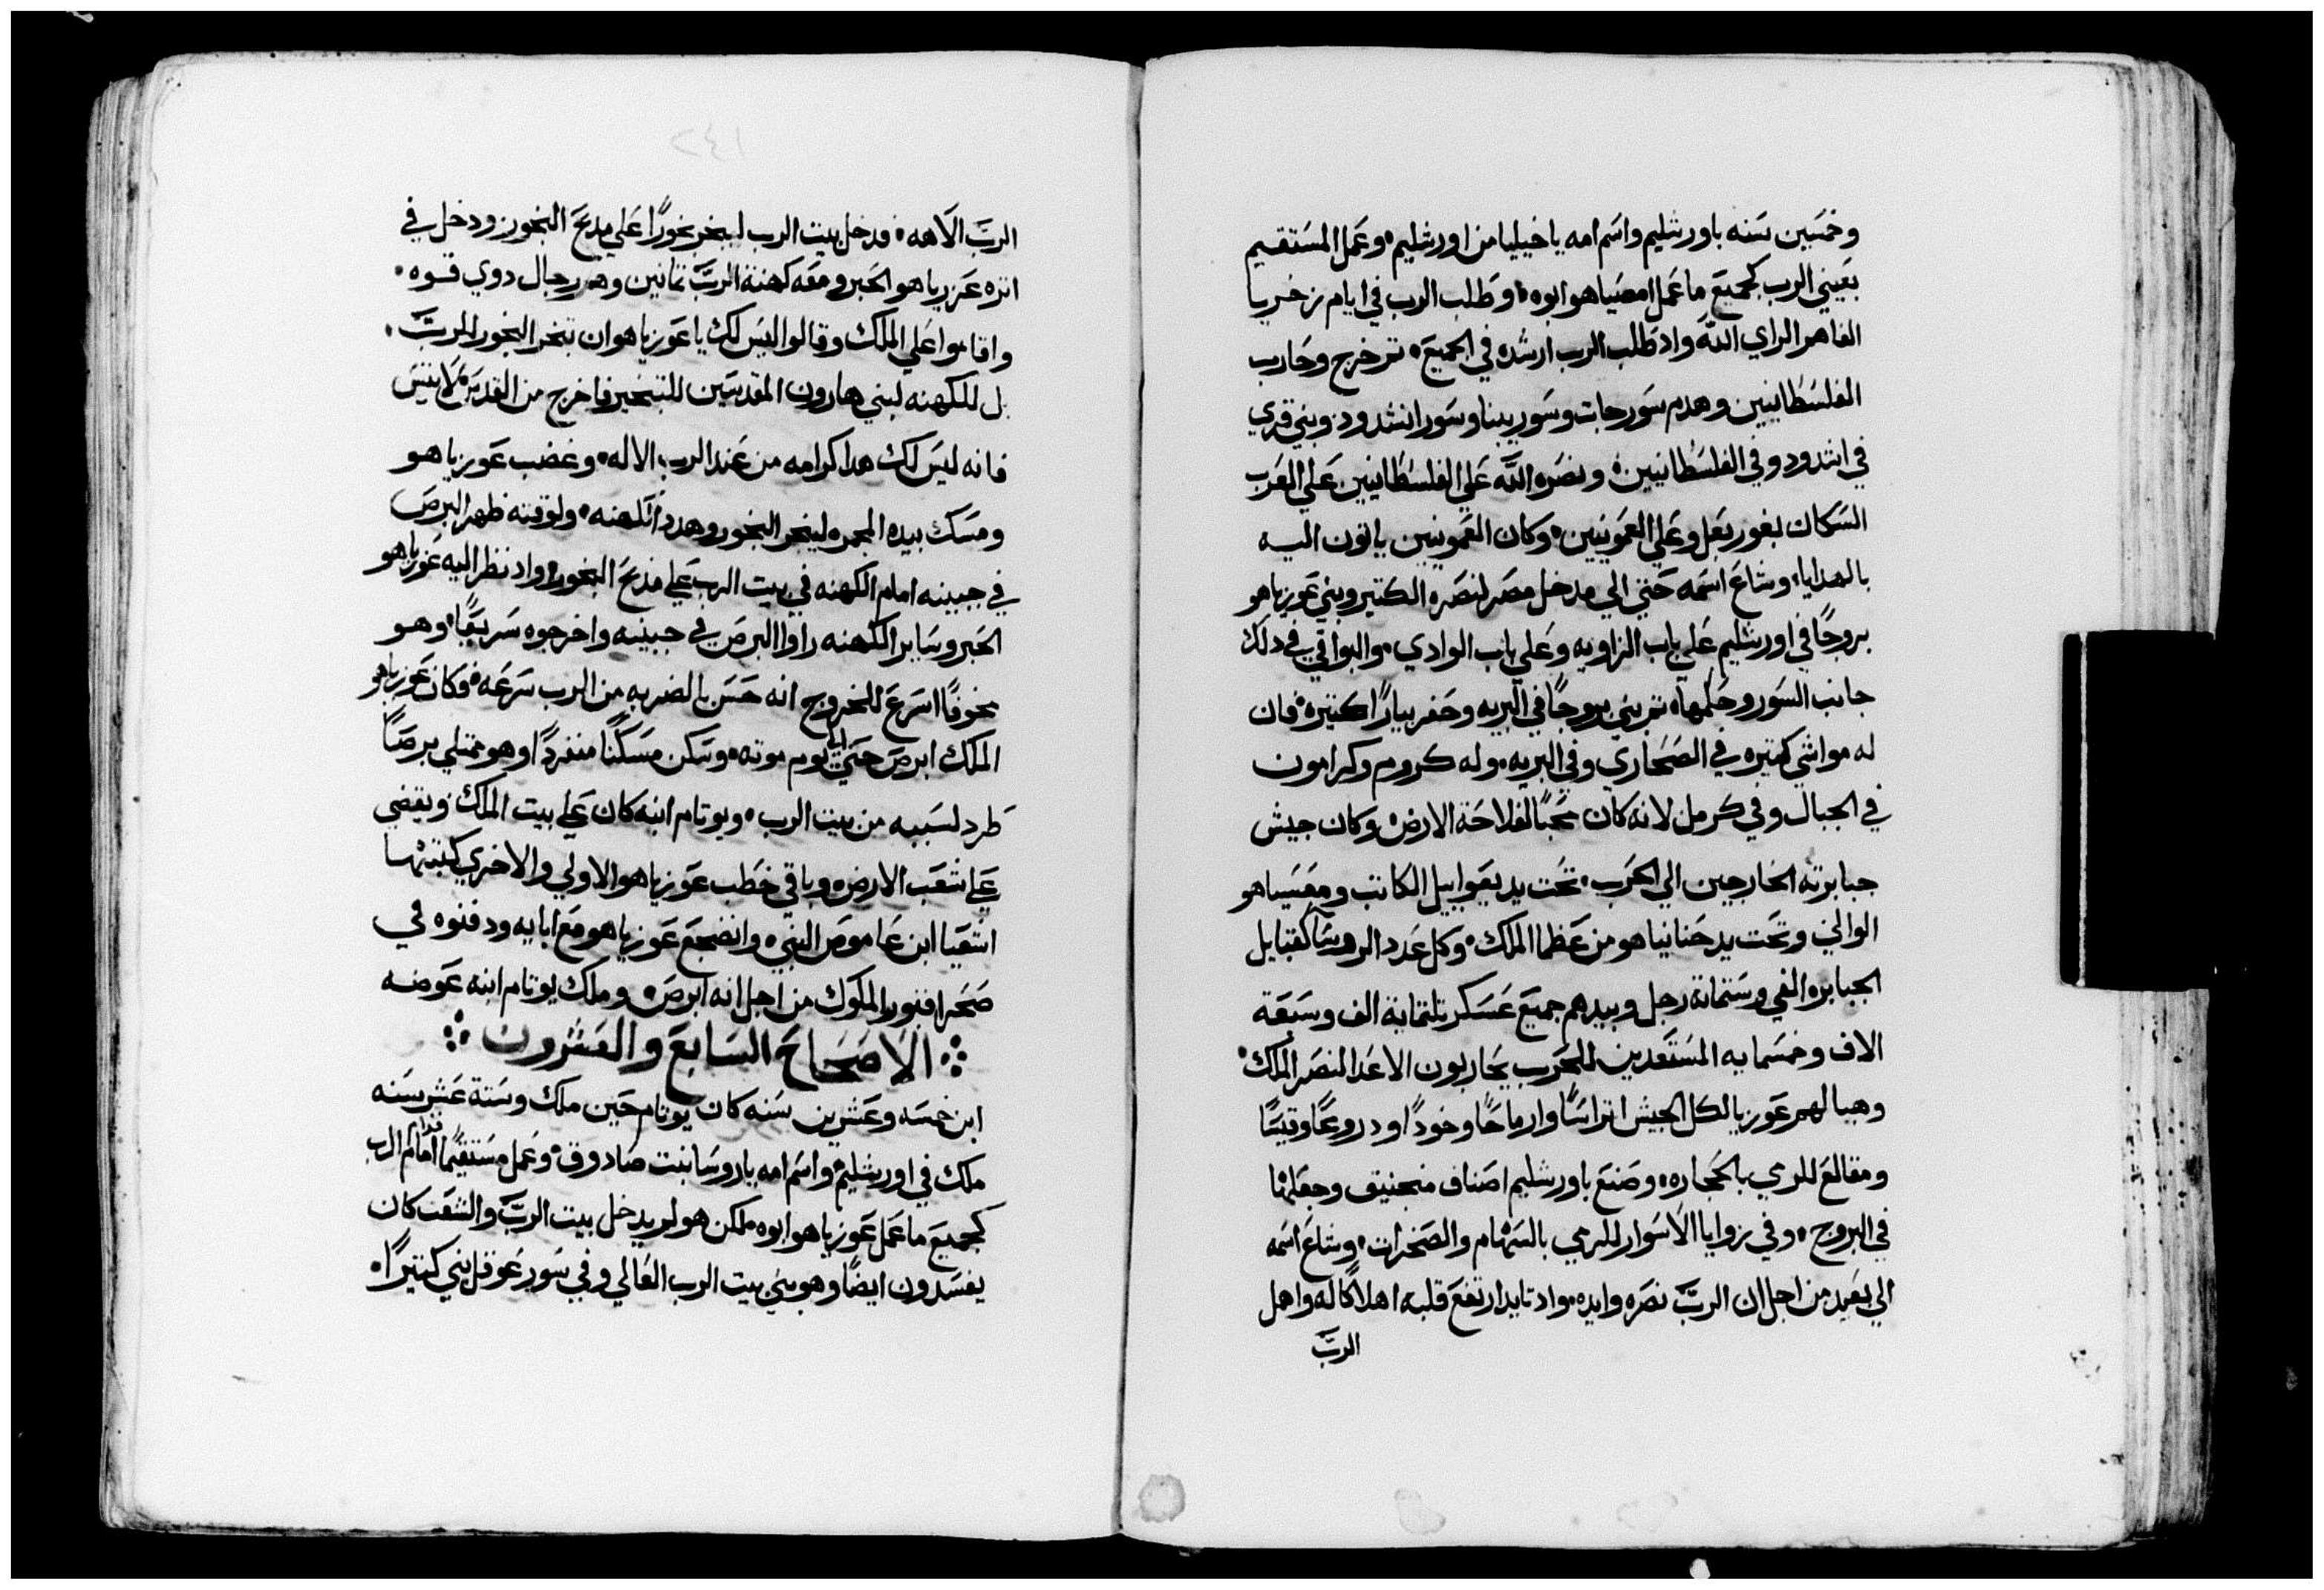 وخمسين سنه باورشليم واسم امه ياخيليا من اورشليم وعمل المستقيم
بعيني الرب كجميع ما عمل امصياهو ابوه وطلب الرب في ايام زخريا
الفاهم الراي الله واد طلب الرب ارشده في الجميع تم خرج وحارب
الفلسطانيين وهدم سور جات وسور يبنا وسور اشدود وبني قري
في اشدود وفي الفلسطانيين ونصره الله علي الفلسطانيين علي العرب
السكان بغور بعل وعلي العمونيين وكان العمونيين ياتون اليه
بالهدايا وشاع اسمه حتي الي مدخل مصر لنصره الكتير وبني عوزياهو
بروجًا في اورشليم علي باب الزاويه وعلي باب الوادي والبواقي في دلك
جانب السور وحكمها تم بني بروجًا في البريه وحفر بيارًا كتيره فان
له مواشي كتيره في الصحاري وفي البريه وله كروم وكرامون
في الجبال وفي كرمل لانه كان محبًا لفلاحة الارض وكان جيش
جبابرته الخارجين الي الحرب تحت يد يعواييل الكاتب ومعسياهو
الوالي وتحت يد حنانياهو من عظما الملك وكل عدد الروسا كقبايل
الجبابره الفي وستماية رجل وبيدهم جميع عسكر تلتماية الف وسبعة
الاف وخمسمايه المستعدين للحرب يحاربون الاعدا لنصر الملك
وهيا لهم عوزيا لكل الجيش اتراسًا وارماحًا وخودًا ودروعًا وقسيًا
ومقالع للرمي بالحجاره وصنع باورشليم اصناف منجنيق وجعلها
في البروج وفي زوايا الاسوار للرمي بالسهام والصخرات وشاع اسمه
الي بعيد من اجل ان الرب نصره وايده واد تايد ارتفع قلبه اهلاكًا له واهمل
الربَّ
١٤٢
الربَّ الاهه فدخل بيت الرب ليبخر بخورًا علي مدبح البخور ودخل في
اتره عزرياهو الحبر ومعه كهنة الربَّ تمانين وهم رجال دوي قوه
واقاموا علي الملك وقالوا اليس لك يا عوزياهو ان تبخر البخور للربَّ
بل للكهنه لبني هارون المقدسين للتبخير فاخرج من القدس لا تنس
فانه ليس لك هدا كرامه من عند الرب الاله وغضب عوزياهو
ومسك بيده المجمره ليبخر البخور وهدد الكهنه ولوقته ظهر البرص
في جبينه امام الكهنه في بيت الرب علي مدبح البخور واد نظر اليه عزرياهو
الحبر وساير الكهنه راوا البرص في جبينه واخرجوه سريعًا وهو
مخوفًا اسرع للخروج انه حس بالضربه من الرب سرعه فكان عوزياهو
الملك ابرص حتي الي يوم موته وسكن مسكنًا منفردًا وهو ممتلي برصًا
طرد لسببه من بيت الرب ويوتام ابنه كان علي بيت الملك ويقضي
علي شعب الارض وباقي خطب عوزياهو الاولي والاخري كتبتها
اشعيا ابن عاموص النبي وانضجع عوزياهو مع ابايه ودفنوه في
صحرا قبور الملوك من اجل انه ابرص وملك يوتام ابنه عوضه
الاصحاح السابع والعشرون
ابن خمسه وعشرين سنه كان يوتام حين ملك وستة عشر سنه
ملك في اورشليم واسم امه ياروسا بنت صادوق وعمل مستقيمًا قدام امام الرب
كجميع ما عمل عوزياهو ابوه لكن هو لم يدخل بيت الربَّ والشعب كان
يفسدون ايضًا وهو بني بيت الرب العالي وفي سور عوفل بني كتيرًا